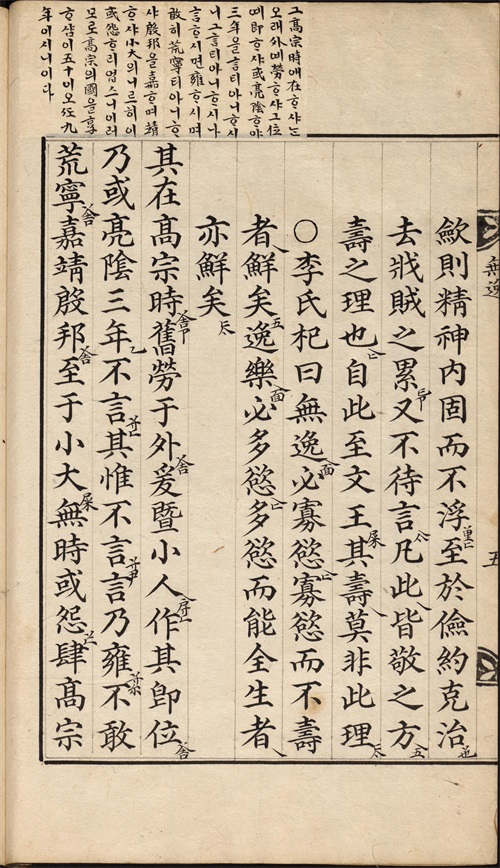 無逸
五
歛則精神內固而不浮至於儉約克治
去戕賊之累又不待言凡此皆敬之方
壽之理也自此至文王其壽莫非此理
○李氏杞曰無逸必寡慾寡慾而不壽
者鮮矣逸樂必多慾多慾而能全生者
亦鮮矣
其在髙宗時舊勞于外爰暨小人作其卽位
乃或亮陰三年不言其惟不言言乃雍不敢
荒寧嘉靖殷邦至于小大無時或怨肆髙宗
그髙宗時애在ᄒᆞ샤ᄂᆞᆫ
오래外예勞ᄒᆞ샤그位
예即ᄒᆞ샤或亮陰ᄒᆞ야
三年을言티아니ᄒᆞ시
니그言티아니ᄒᆞ시나
言ᄒᆞ시면雍ᄒᆞ시며
敢히荒寧티아니ᄒᆞ
샤殷邦을嘉ᄒᆞ며靖
ᄒᆞ샤小大의니르히이
或怨ᄒᆞ리업스니이러
모로髙宗의國을享
ᄒᆞ샴이五十이오 九
年이시니이다